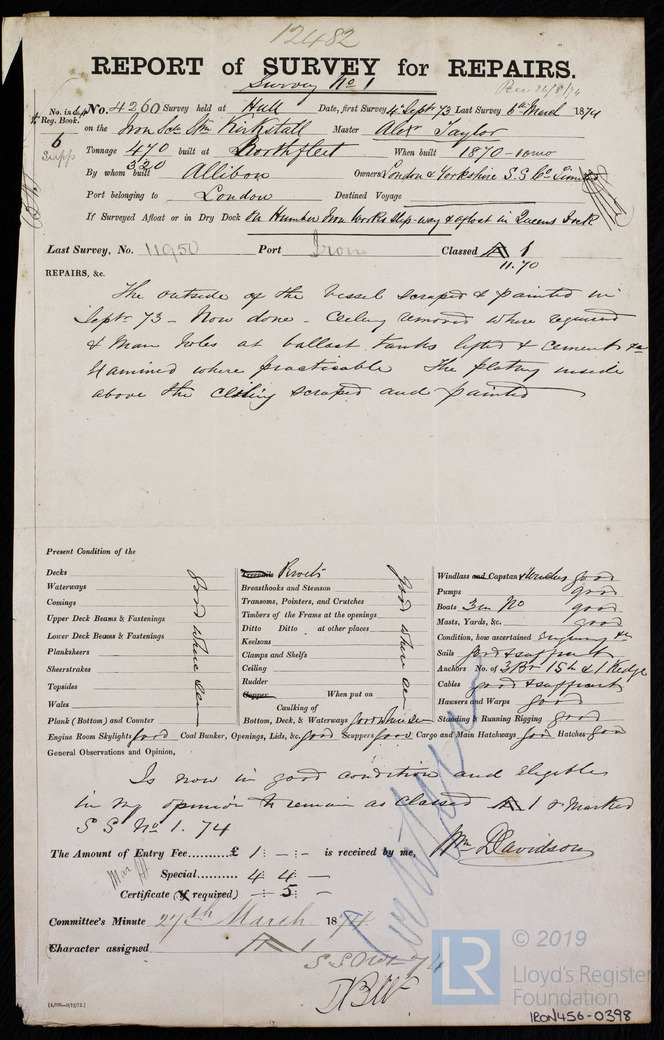 12482
REPORT of SURVEY for REPAIRS.
Survey No 1
No. in Reg. Book. No. 4260 Survey held at Hull Date, first Survey 4th Sept 73 Last Survey 6th March 1874
6 Supp on the Iron Scr Stm Kirkstall Master Alexr Taylor
Tonnage 470 built at Northfleet When built 1870 -
320
By whom built Allibon Owners London & Yorkshire S.S. Co
Port belonging to London Destined Voyage
If Surveyed Afloat or in Dry Dock On Humber Iron Works Slip-way & afloat in Queens Dock
Last Survey, No. 11950 Port Iron Classed A 1
11.70
REPAIRS, &c.
The outside of the vessel scraped & painted in
Septr 73 - Now done - Ceiling removed where required
& Man holes at ballast tanks lifted & cement
Examined where practicable The plating inside
above the ceiling scraped and painted
Present Condition of the
Decks
Waterways
Comings
Upper Deck Beams & Fastenings
Lower Deck Beams & Fastenings
Planksheers
Sheerstrakes
Topsides
Wales
Plank (Bottom) and Counter
good where seen
Treenails Rivets
Breasthooks and Stemson
Transoms, Pointers, and Crutches
Timbers of the Frame at the openings
Ditto Ditto at other places
Keelsons
Clamps and Shelfs
Ceiling
Rudder
Copper When put on
Caulking of
Bottom, Deck, & Waterways good where seen
good where seen
Windlass and Capstan & Winches good
Pumps good
Boats 3 in No good
Masts, Yards, &c. good
Condition, how ascertained
Sails good & sufficient
Anchors No. of 3 Br 1 Sm & 1 Kedge
Cables good & sufficient
Hawsers and Warps good
Standing & Running Rigging good
Engine Room Skylights good Coal Bunker, Openings, Lids, &c. good Scuppers good Cargo and Main Hatchways good Hatches good
General Observations and Opinion,
Is now in good condition and eligible
in my opinion to remain as classed A 1 & marked
S S No 1. 74
The Amount of Entry Fee..........£ 1 : - : - is received by me, Wm Davidson
Special.......... 4 : 4 : -
Certificate (if required) - : 5 : -
Committee's Minute 27th March 1874
Character assigned A 1
S S No 1 - 74
LR
© 2019
Lloyd's Register
Foundation
IRON456-0398